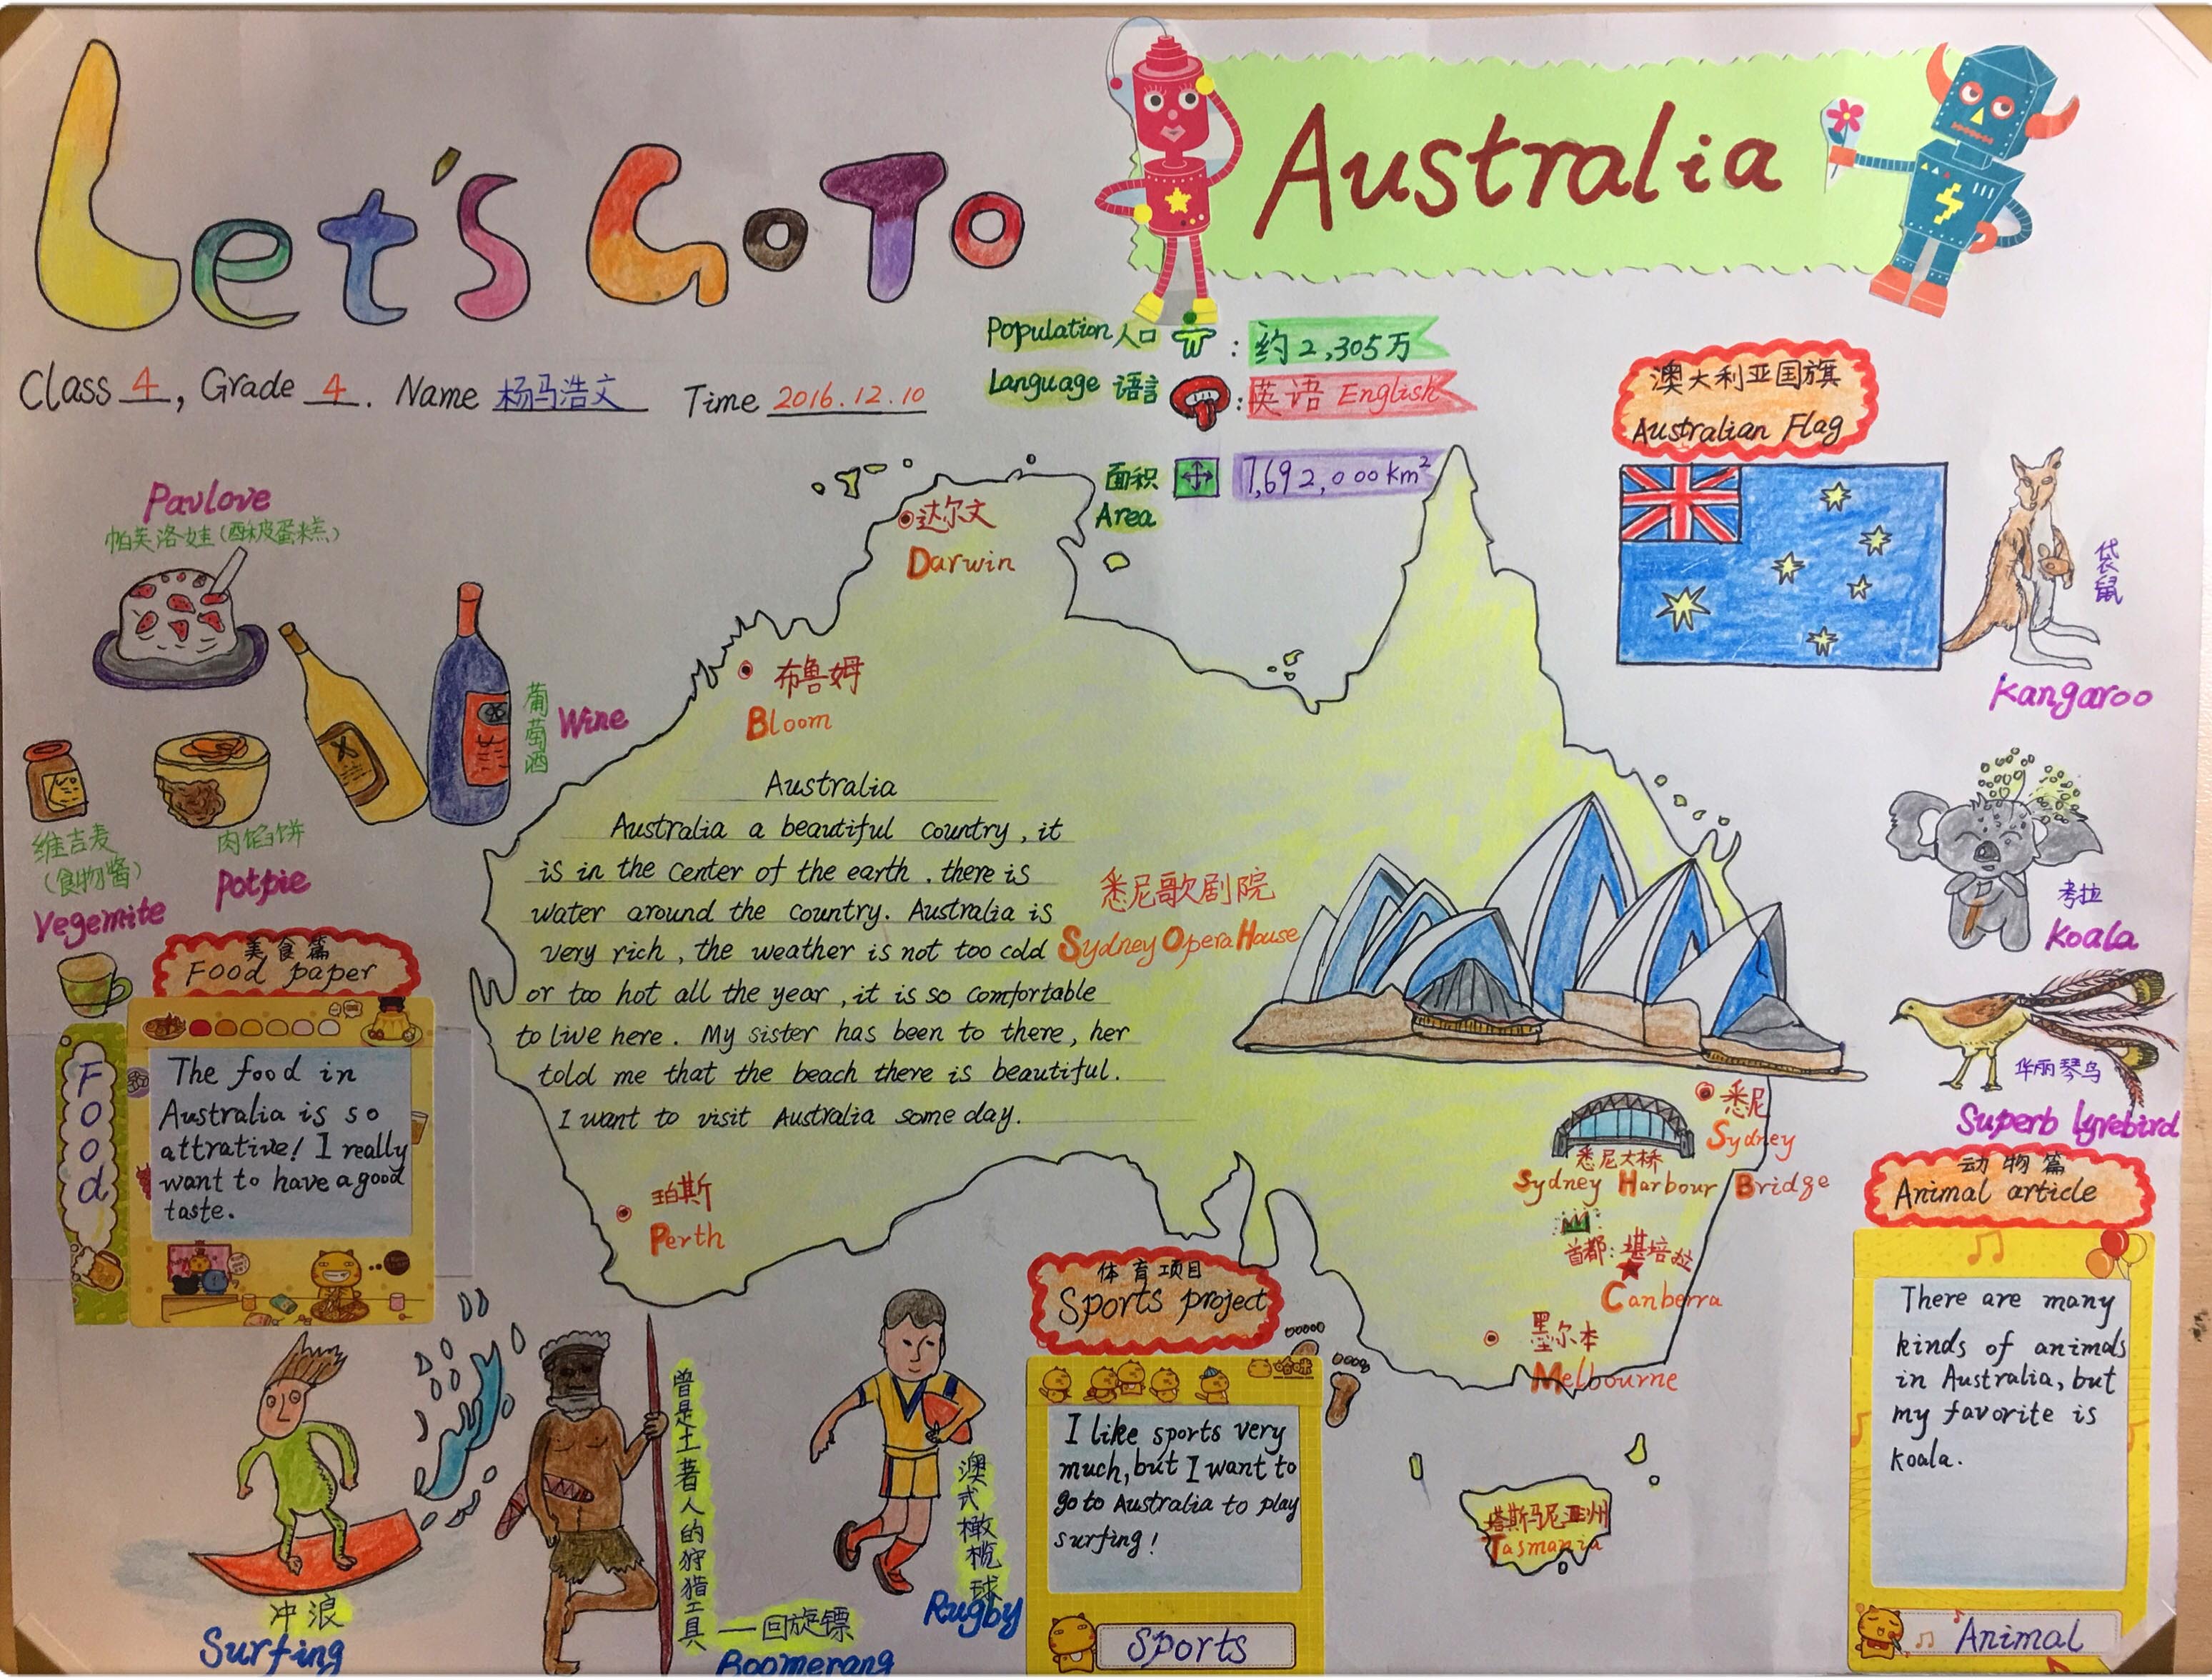 Let's Go To
Australia
Population 人口 : 约2,305万
Language 语言 : 英语 English
面积 7,692,000km²
Area
Class 4, Grade 4. Name 杨马浩文 Time 2016.12.10
澳大利亚国旗
Australian Flag
Pavlove
帕芙洛娃(酥皮蛋糕)
葡萄酒
Wine
维吉麦
(食物酱)
Vegemite
肉馅饼
Potpie
达尔文
Darwin
布鲁姆
Bloom
袋鼠
Kangaroo
考拉
Koala
华丽琴鸟
Superb Lyrebird
Australia
Australia a beautiful country, it
is in the center of the earth. there is
water around the country. Australia is
very rich, the weather is not too cold
or too hot all the year, it is so comfortable
to live here. My sister has been to there, her
told me that the beach there is beautiful.
I want to visit Australia some day.
悉尼歌剧院
Sydney Opera House
悉尼
Sydney
悉尼大桥
Sydney Harbour Bridge
首都:堪培拉
Canberra
墨尔本
Melbourne
珀斯
Perth
塔斯马尼亚州
Tasmania
美食篇
Food paper
Food
The food in
Australia is so
attrative! I really
want to have a good
taste.
冲浪
Surfing
曾是土著人的狩猎工具
—回旋镖
Boomerang
澳式橄榄球
Rugby
体育项目
Sports project
哈咪
I like sports very
much, but I want to
go to Australia to play
surfing!
Sports
动物篇
Animal article
There are many
kinds of animals
in Australia, but
my favorite is
koala.
Animal